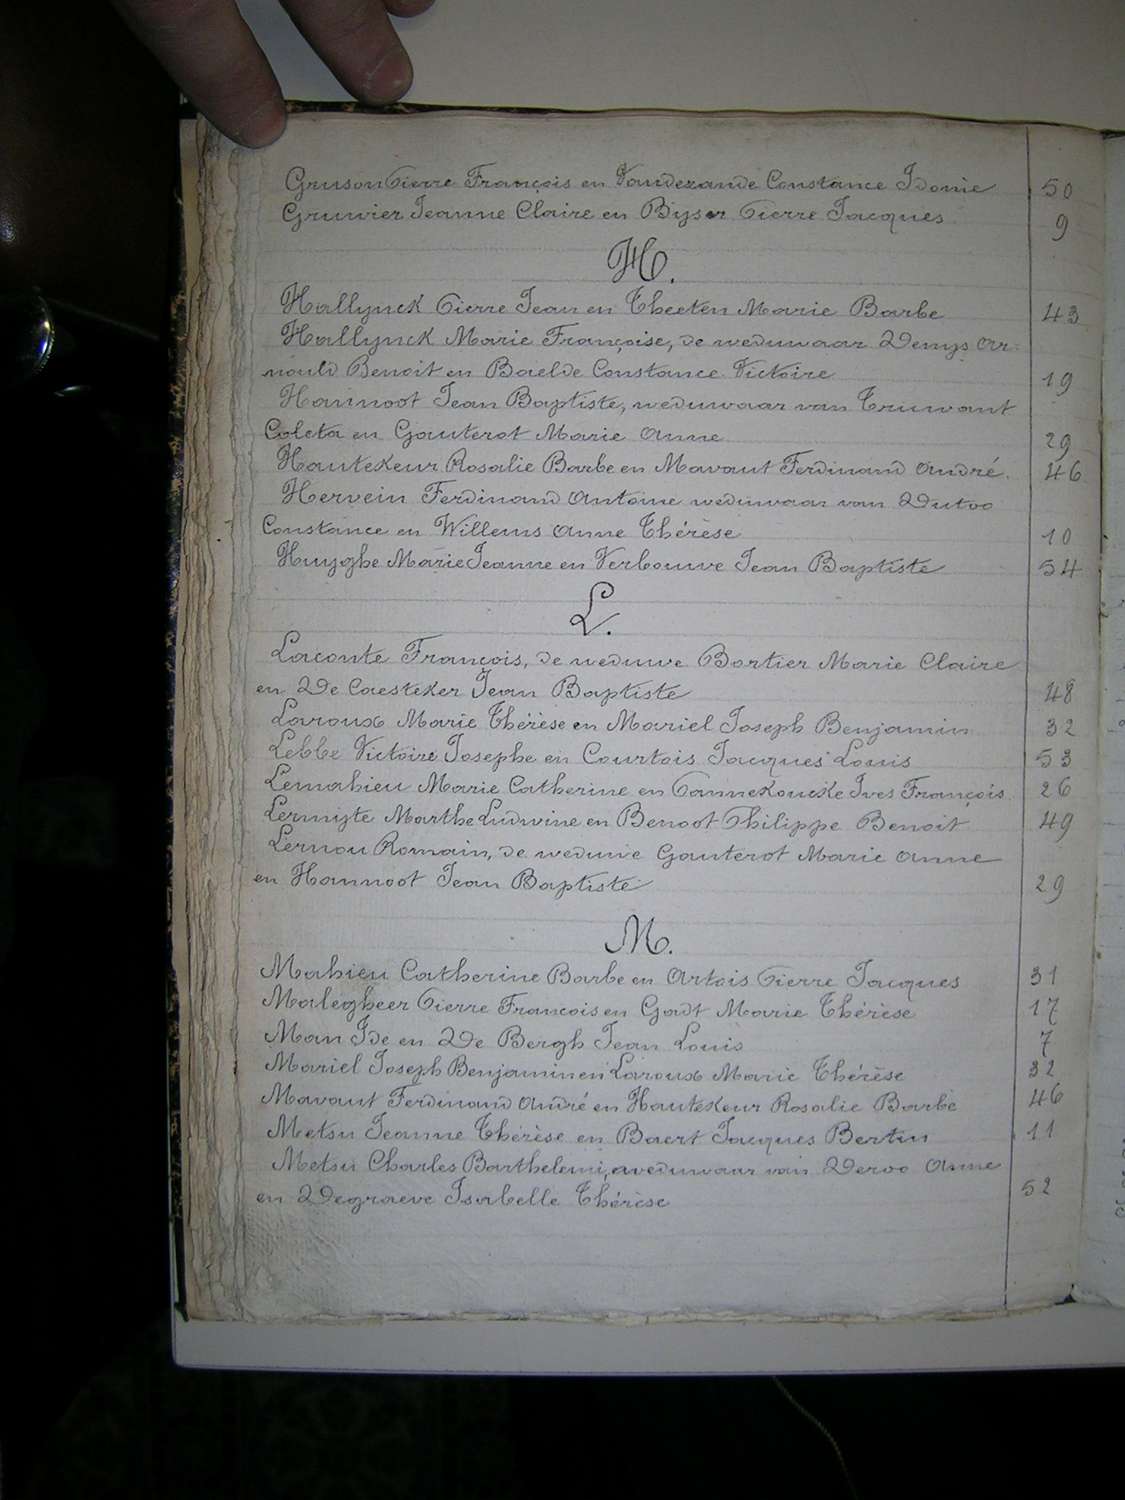 Gruson Pierre François en Vandezande Constance Idonie 50
Gruwier Jeanne Claire en Byser Pierre Jacques 9
H.
Hallynck Pierre Jean en Theeten Marie Barbe 43
Hallynck Marie Françoise, de weduwaar Denys Ar-
nould Benoit en Baelde Constance Victoire 19
Hannoot Jean Baptiste, weduwaar van Truwant
Coleta en Gauterot Marie Anne 29
Hautekeur Rosalie Barbe en Mavaut Ferdinand André. 46
Hervein Ferdinand Antoine weduwaar van Dutoo
Constance en Willems Anne Thérèse 10
Huyghe Marie Jeanne en Verbouwe Jean Baptiste 54
L.
Laconte François, de weduwe Bortier Marie Claire
en De Caesteker Jean Baptiste 48
Laroux Marie Thérèse en Mariel Joseph Benjamin 32
Lebbe Victoire Josephe en Courtois Jacques Louis 53
Lemahieu Marie Catherine en Pannekoucke Ives François 26
Lermyte Marthe Ludwine en Benoot Philippe Benoit 49
Lernou Romain, de weduwe Gauterot Marie Anne
en Hannoot Jean Baptiste 29
M.
Mahieu Catherine Barbe en Artois Pierre Jacques 31
Malegheer Pierre François en Gadt Marie Thérèse 17
Man Ide en De Bergh Jean Louis 7
Mariel Joseph Benjamin en Laroux Marie Thérèse 32
Mavaut Ferdinand André en Hautekeur Rosalie Barbe 46
Metsu Jeanne Thérèse en Baert Jacques Bertin 11
Metsu Charles Barthelemi, weduwaar van Deroo Anne
en Degraeve Isabelle Thérèse 52